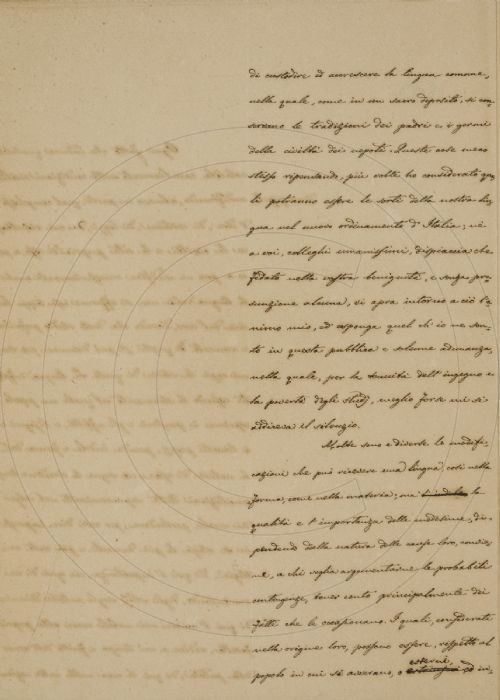 di custodire ed accrescere la lingua comune,
nella quale, come in un sacro deposito, si con
servano le tradizioni dei padri e i germi
della civiltà dei nepoti. Queste cose meco
stesso ripensando, più volte ho considerato qua
li potranno essere le sorti della nostra lin
gua nel nuovo ordinamento d'Italia; nè
a voi, colleghi umanissimi, dispiaccia che
fidato nella vostra benignità, e senza pre
sunzione alcuna, vi apra intorno a ciò l'a
nimo mio, ed esponga quel ch'io ne sen
to in questa pubblica e solenne adunanza,
nella quale, per la tenuità dell'ingegno e
la povertà degli studj, meglio forse mi si
addiceva il silenzio.
Molte sono e diverse le modifi
cazioni che può ricevere una lingua, così nella
forma, come nella materia; ma la
qualità e l'importanza delle medesime, di
pendendo dalla natura delle cause loro, convie
ne, a chi voglia argomentarne le probabili
contingenze, tener conto principalmente dei
fatti che le cagionano. I quali, considerati
nella origine loro, possono essere, rispetto al
esterni,
popolo in cui si avverano, o ed in